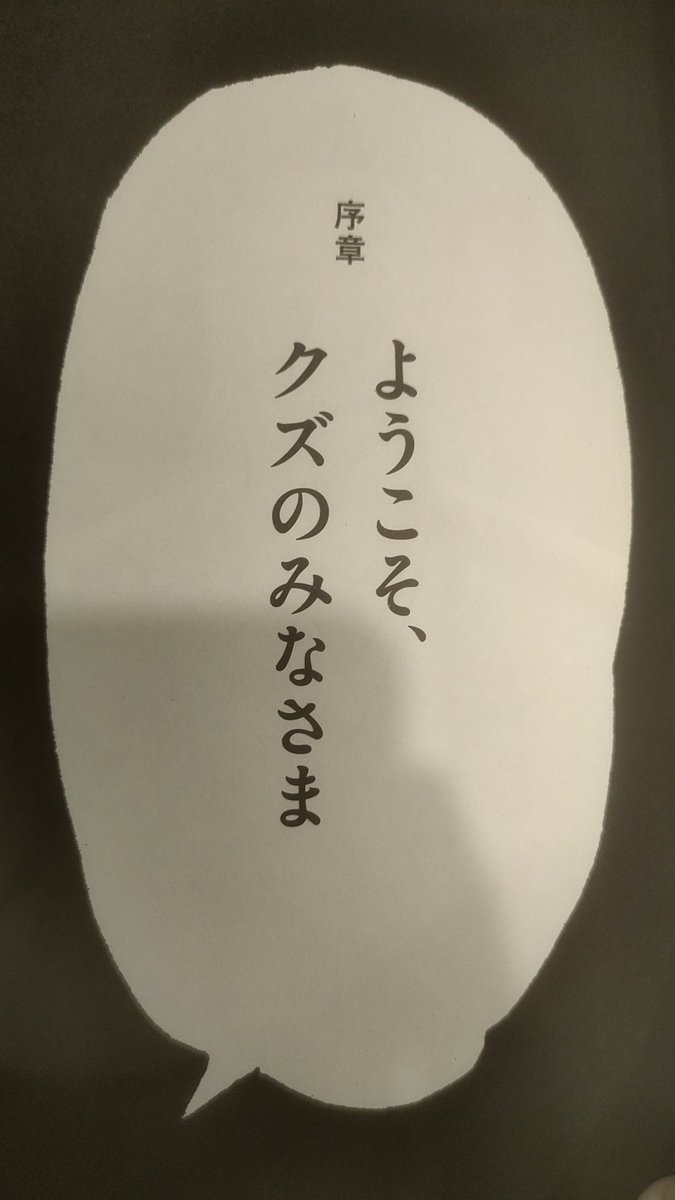 序章
ようこそ、
クズのみなさま